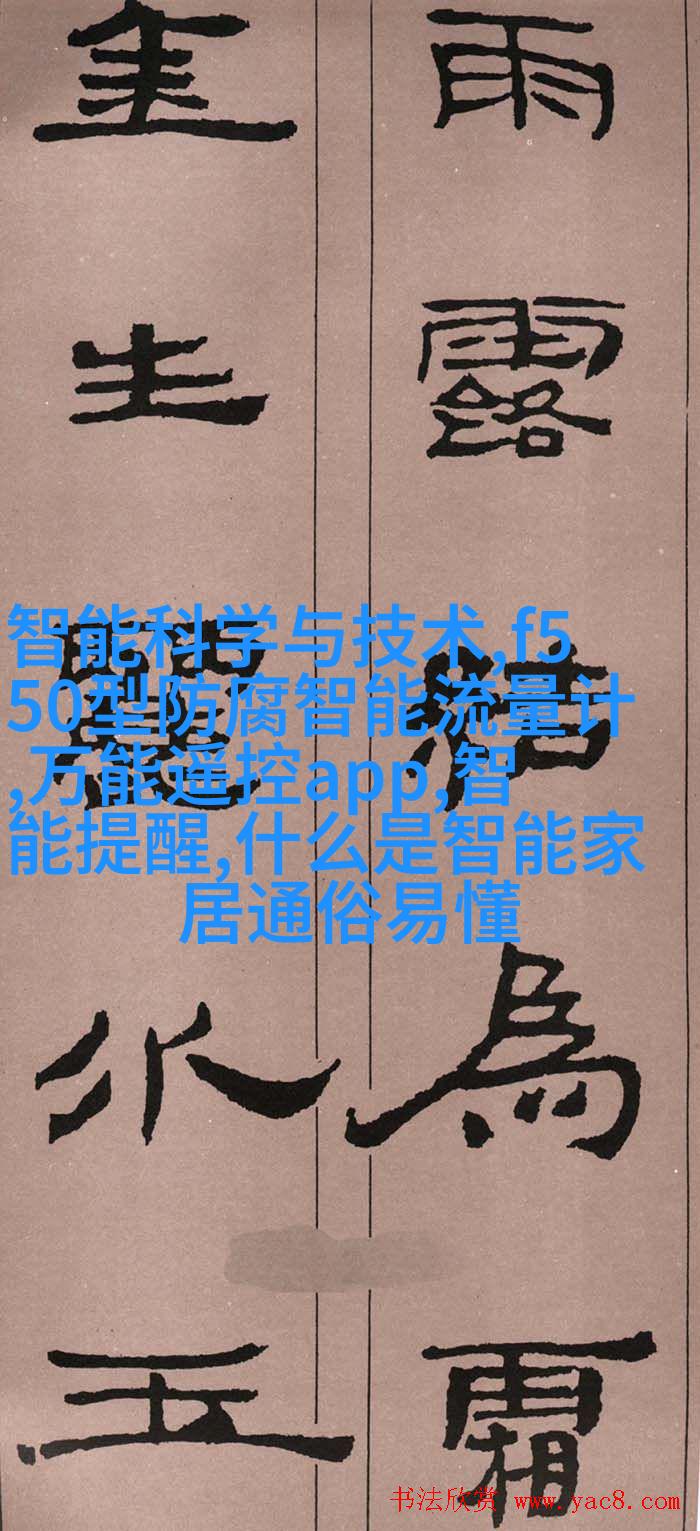 雨露結為霜
金生麗水玉
智能科学与技术,f5
50型防腐智能流量计
,万能遥控app,智
能提醒,什么是智能家
居通俗易懂
书法欣赏 www.yac8.com